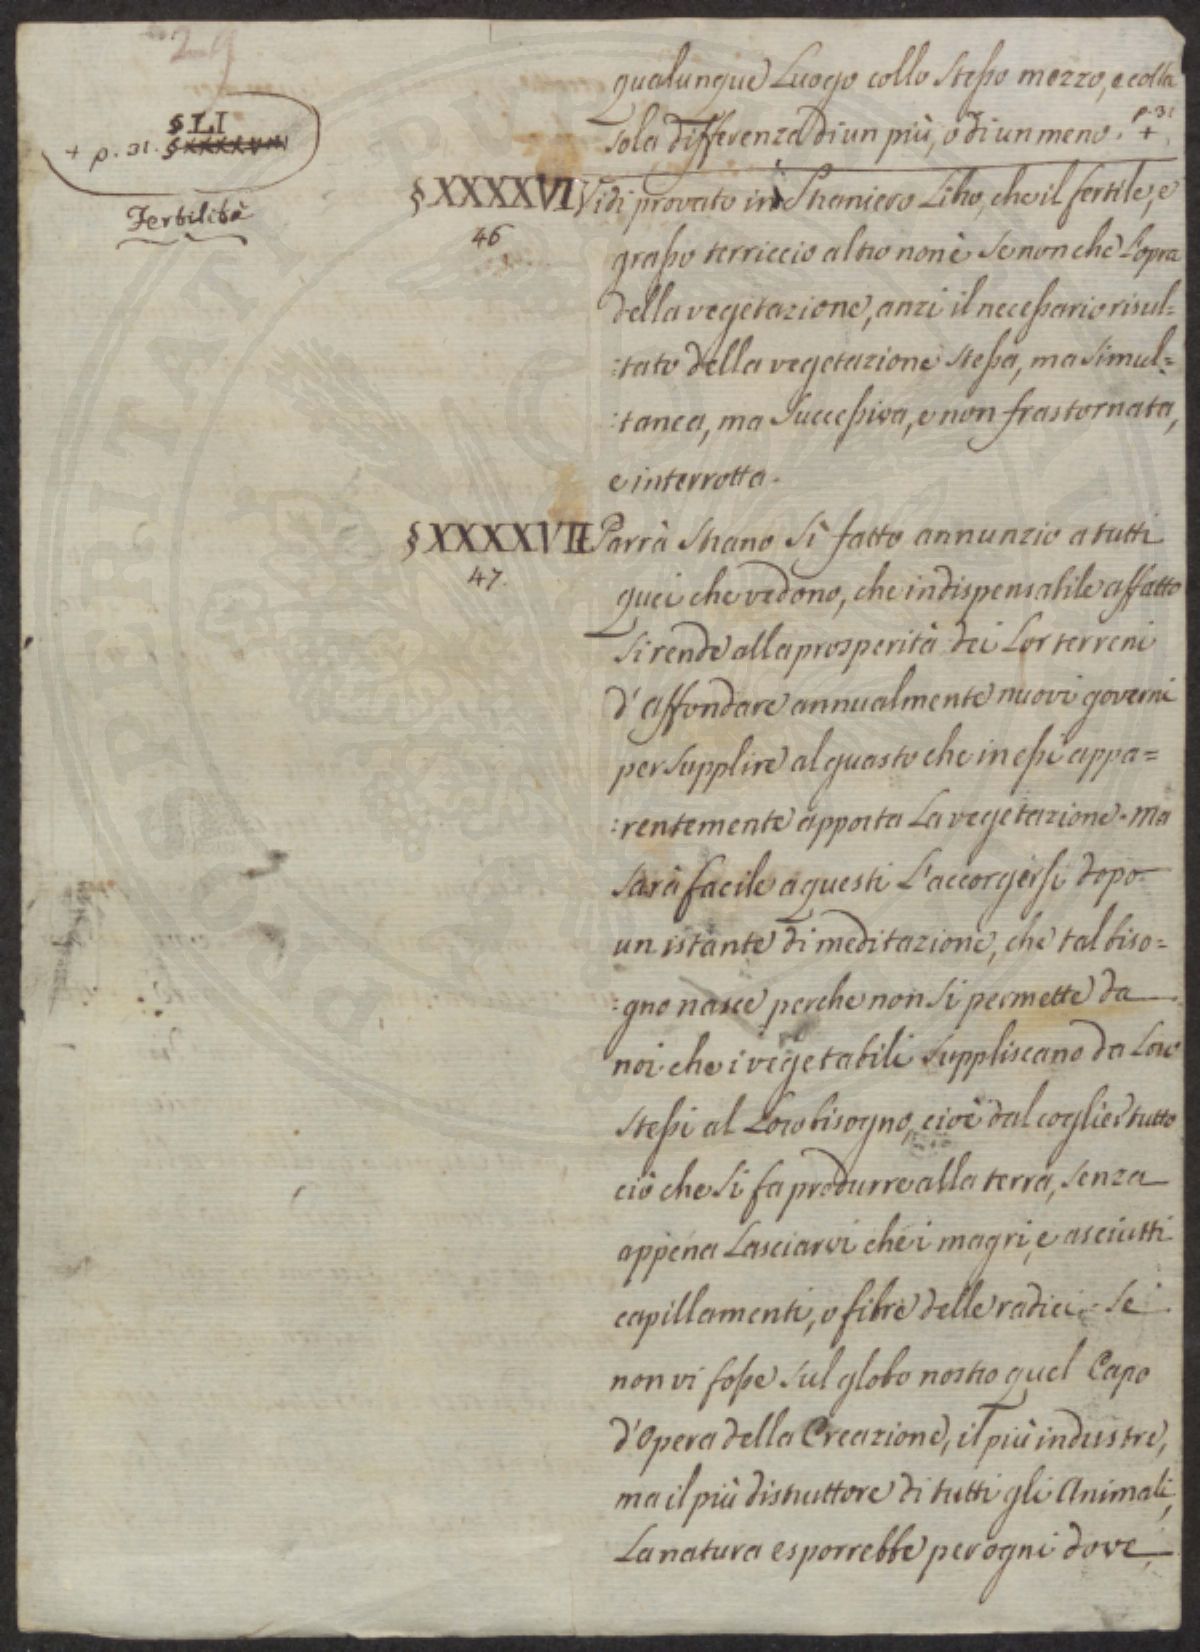 29
§ LI
+ p. 31. §XXXXVIII
Fertilità
qualunque Luogo collo stesso mezzo, e colla
sola differenza di un più, o di un meno. + p. 31
§XXXXVI Vidi provato in Straniero Libro, che il fertile, e
46
grasso terriccio altro non è se non che L'opra
della vegetazione, anzi il necessario risul=
:tato della vegetazione stessa, ma simul=
:tanea, ma successiva, e non frastornata,
e interrotta.
§XXXXVII Parrà strano sì fatto annunzio a tutti
47.
quei che vedono, che indispensabile affatto
si rende alla prosperità dei Lor terreni
d'affondare annualmente nuovi governi
per supplire al guasto che in essi appa=
:rentemente apporta La vegetazione. Ma
sarà facile a questi L'accorgersi dopo
un istante di meditazione, che tal biso=
:gno nasce perche non si permette da
noi che i vegetabili suppliscano da Loro
stessi al Loro bisogno, cioè dal coglier tutto
ciò che si fa produrre alla terra, senza
appena Lasciarvi che i magri, e asciutti
capillamenti, o fibre delle radici. Se
non vi fosse sul globo nostro quel Capo
d'Opera della Creazione, il più industre,
ma il più distruttore di tutti gli Animali,
La natura esporrebbe per ogni dove,